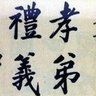 孝弟
禮義